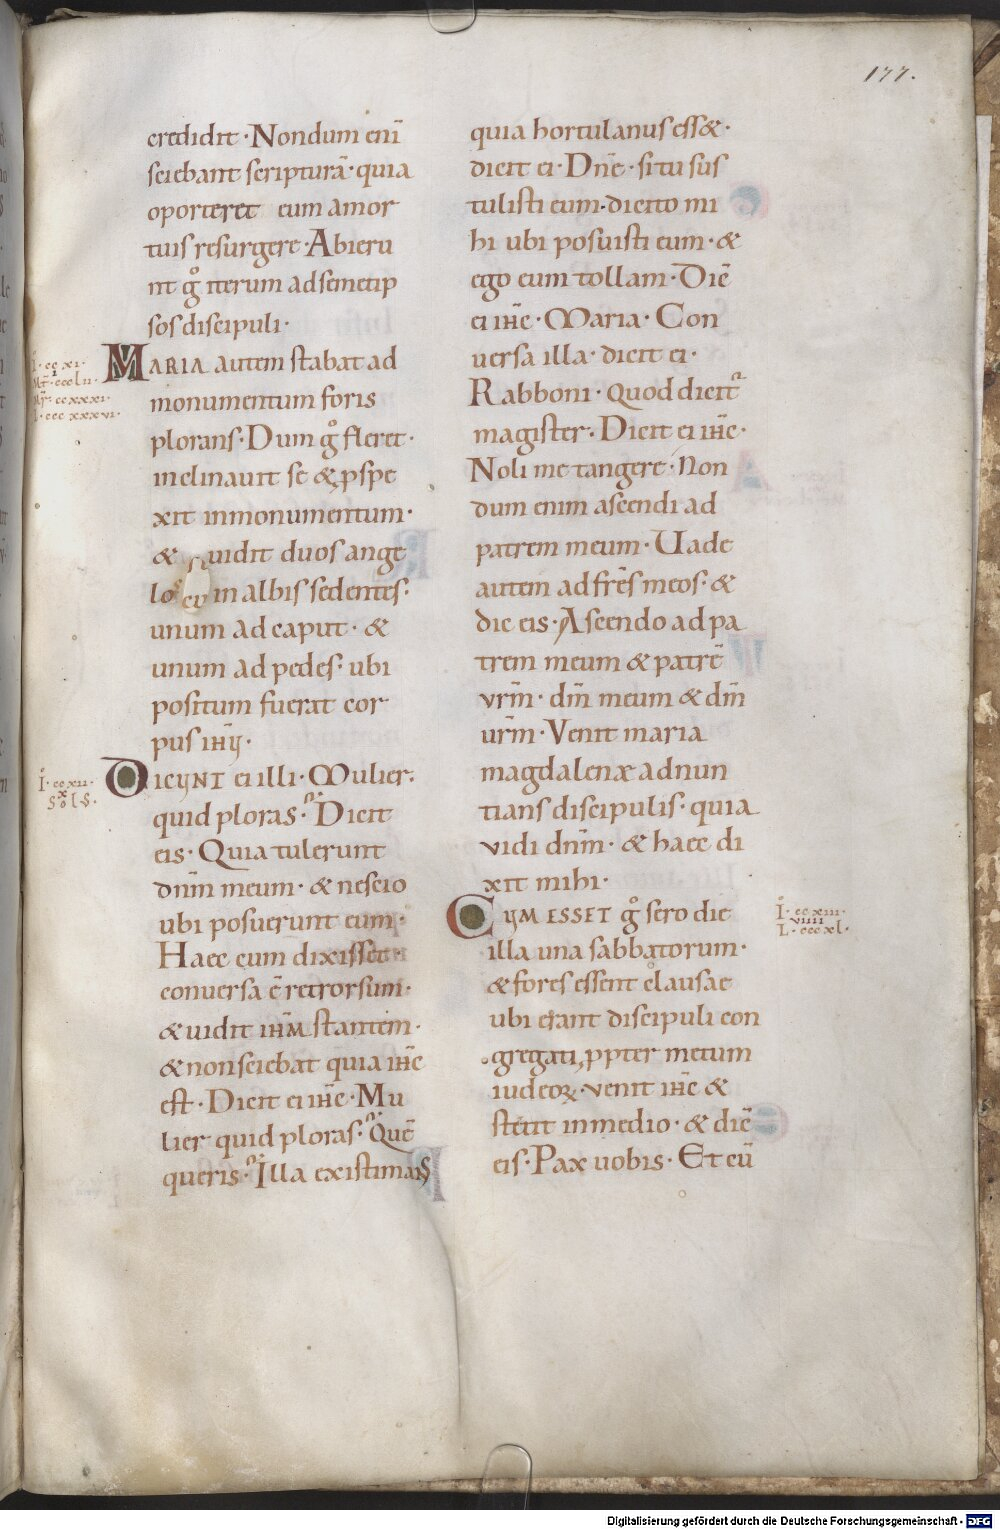 177.
credidit · Nondum enī
sciebant scripturā · quia
oporteret eum amor
tuis resurgere · Abieru
nt g̊ iterum ad semetip
sos discipuli ·
MARIA autem stabat ad
monumentum foris
plorans · Dum g̊ fleret ·
inclinavit se & ꝓspe
xit in monumentum ·
& vidit duos ange
los in albis sedentes ·
unum ad caput · &
unum ad pedes · ubi
positum fuerat cor
pus ihu ·
DICUNT ei illi · Mulier ·
quid ploras · Dicit
eis · Quia tulerunt
dnm̄ meum · & nescio
ubi posuerunt eum ·
Haec cum dixisset ·
conversa ē retrorsum ·
& vidit ihm̄ stantem ·
& non sciebat quia ihc̄
est · Dicit ei ihc̄ · Mu
lier quid ploras · Quē
queris · Illa existimans
quia hortulanus ess& ·
dicit ei · Dnē · si tu sus
tulisti eum · dicito mi
hi ubi posuisti eum · &
ego eum tollam · Dic̄
ei ihc̄ · Maria · Con
versa illa · dicit ei ·
Rabboni · Quod dicit᷑
magister · Dicit ei ihc̄ ·
Noli me tangere · Non
dum enim ascendi ad
patrem meum · Uade
autem ad frēs meos · &
dic eis · Ascendo ad pa
trem meum & patrē
vrm̄ · dm̄ meum & dm̄
urm̄ · Venit maria
magdalenæ adnun
tians discipulis · quia
vidi dnm̄ · & haec di
xit mihi ·
CUM ESSET g̊ sero die
illa una sabbatorum ·
& fores essent clausae
ubi erant discipuli con
gregati ꝓpter metum
iudeoꝝ · venit ihc̄ &
stetit in medio · & dic̄
eis · Pax vobis · Et cū
I · ccxi ·
Mt · ccclii ·
Mr · ccxxxi ·
L · cccxxxvi ·
I · ccxii ·
I · ccxiii ·
viiii
L · cccxl ·
Digitalisierung gefördert durch die Deutsche Forschungsgemeinschaft · DFG